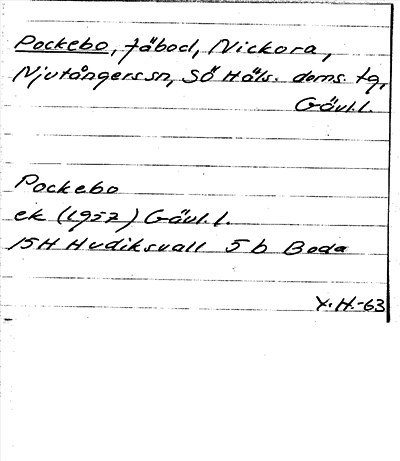 Pockebo, fäbod, Nickora,
Njutångers sn, SÖ Häls. doms. tg,
Gävl.l.
Pockebo
ek (1957) Gävl.l.
15H Hudiksvall 5 b Boda
Y.H.-63